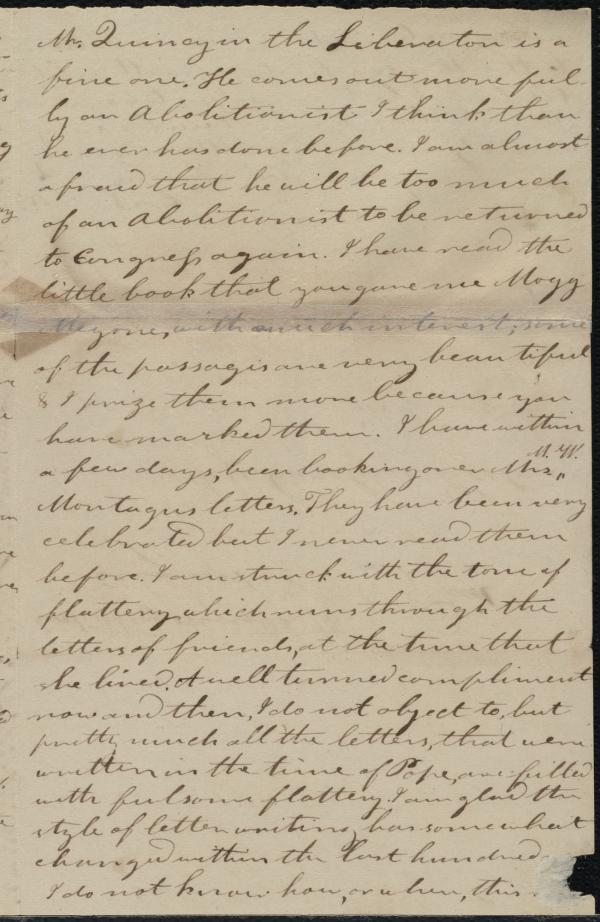 Mr. Quincy in the Liberator is a
fine one. He comes out more ful-
ly an Abolitionist I think than
he ever has done before. I am almost
afraid that he will be too much
of an Abolitionist to be returned
to Congress again. I have read the
little book that you gave me Mogg
Megone, with much interest; some
of the passages are very beautiful
& I prize them more because you
have marked them. I have within
a few days, been looking over Mrs
M. W.
Montagus letters. They have been very
celebrated but I never read them
before. I am struck with the tone of
flattery which runs through the
letters of friends, at the time that
she lived. A well turned compliment
now and then, I do not object to, but
pretty much all the letters, that were
written in the time of Pope, are filled
with fulsome flattery. I am glad the
style of letter writing has somewhat
changed within the last hundred
I do not know how, or when, this